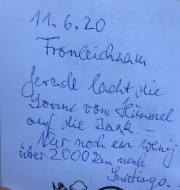 11.6.20
Fronleichnam
Gerade lacht die
Sonne vom Himmel
auf die Bank. –
Nur noch ein wenig
über 2000 km nach
Santiago.